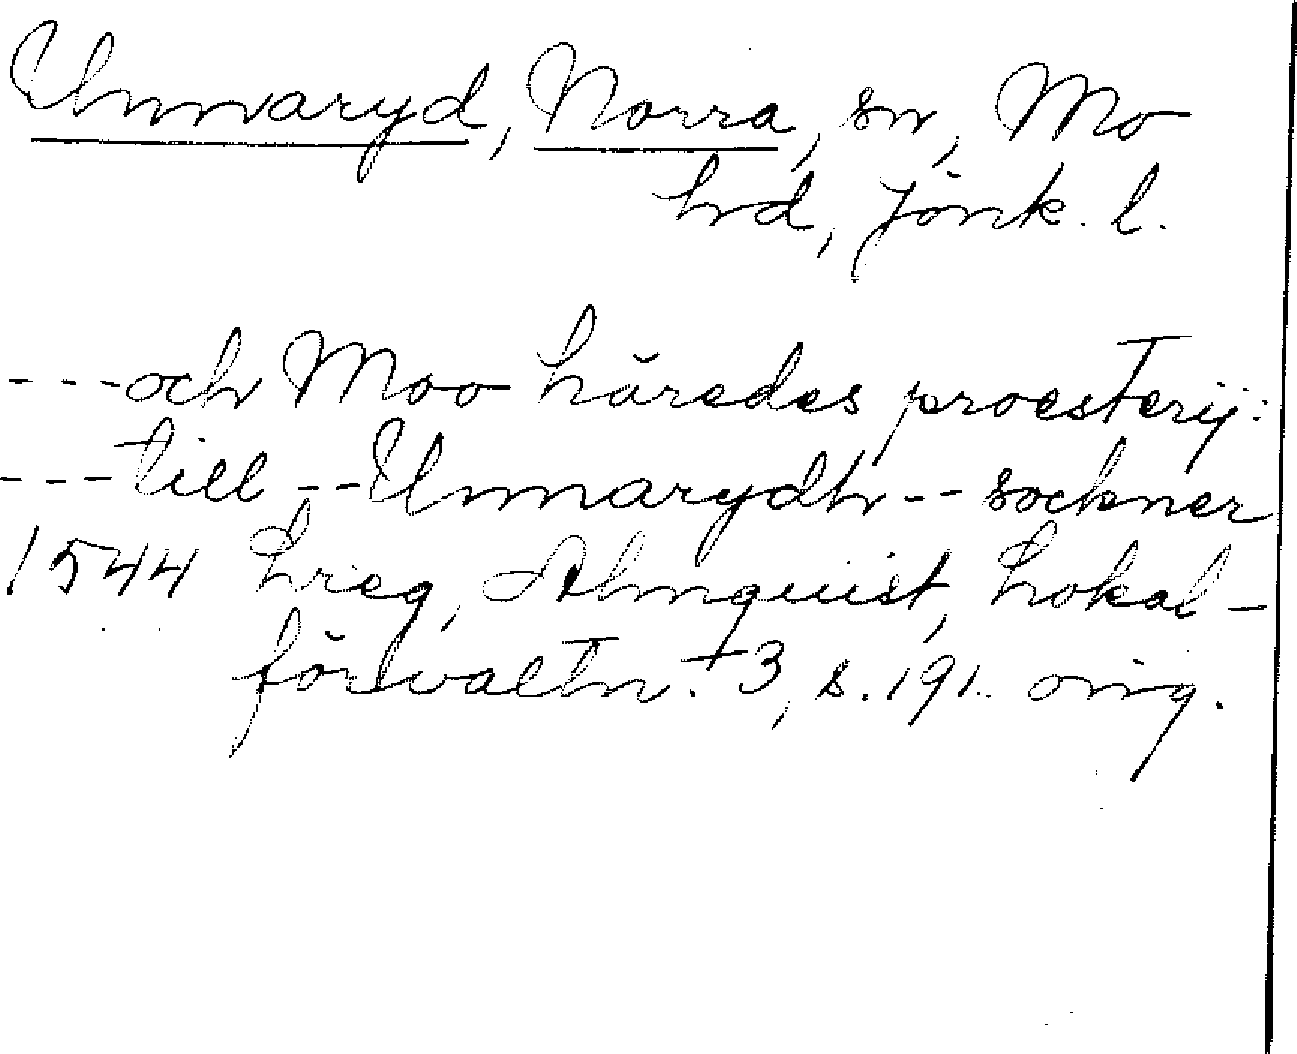 Unnaryd, Norra, sn, Mo
hd, Jönk. l.
---och Moo häredes proesterij:
---till --Unnarydh-- sockner
1544 Lreg, Almquist, Lokal-
förvaltn. 3, s. 191. orig.